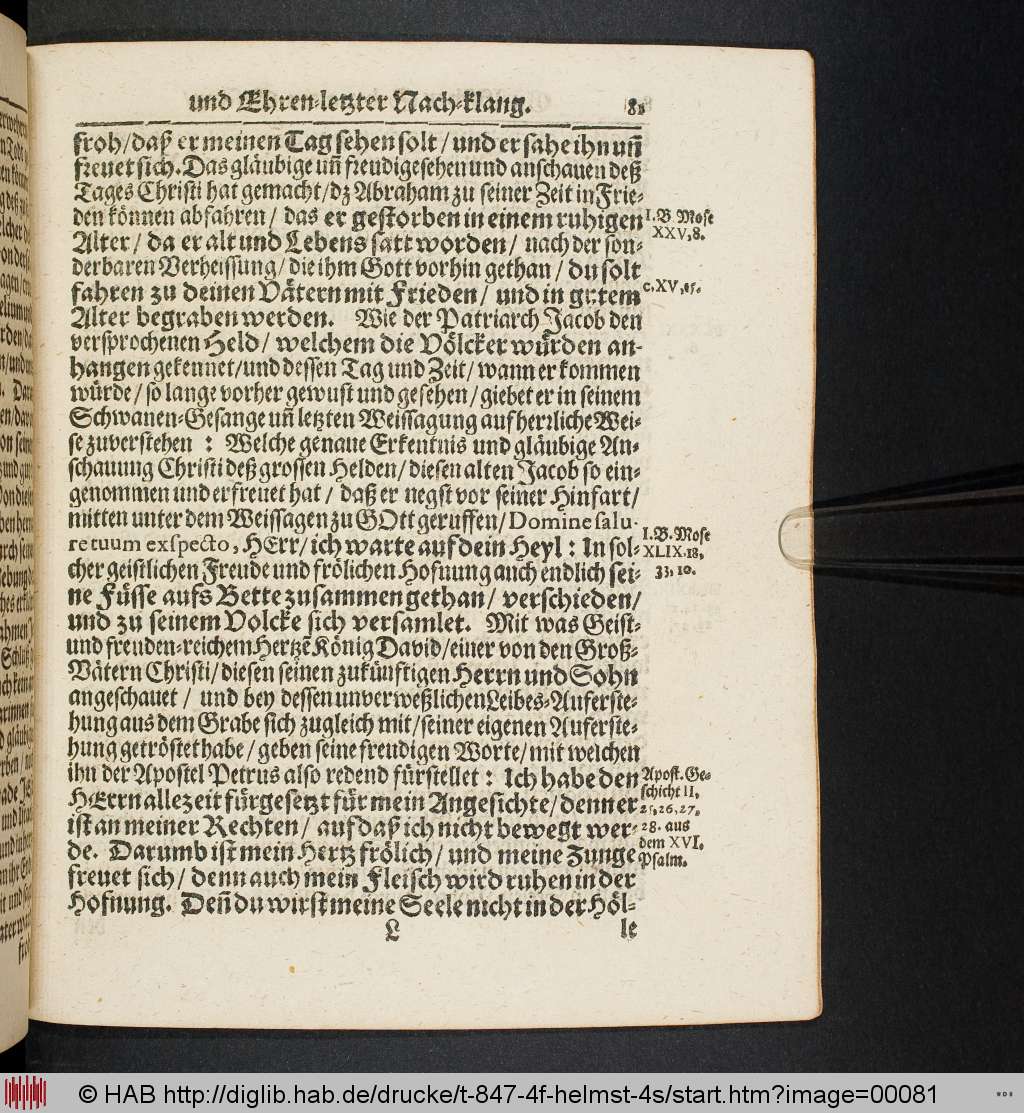 und Ehren-letzter Nach-klang. 81
froh/daß er meinen Tag sehen solt/und er sahe ihn uñ
freuet sich. Das gläubige uñ freudige sehen und anschauen deß
Tages Christi hat gemacht/dz Abraham zu seiner Zeit in Frie-
den können abfahren/ das er gestorben in einem ruhigen
I. B Mose
XXV, 8.
Alter/ da er alt und Lebens satt worden/ nach der son-
derbaren Verheissung/ die ihm Gott vorhin gethan/ du solt
fahren zu deinen Vätern mit Frieden/ und in gutem
c. XV, 15.
Alter begraben werden. Wie der Patriarch Jacob den
versprochenen Held/ welchem die Völcker würden an-
hangen gekennet/und dessen Tag und Zeit/ wann er kommen
würde/ so lange vorher gewust und gesehen/ giebet er in seinem
Schwanen-Gesange uñ letzten Weissagung auf herrliche Wei-
se zuverstehen : Welche genaue Erkentnis und gläubige An-
schauung Christi deß grossen Helden/ diesen alten Jacob so ein-
genommen und erfreuet hat/ daß er negst vor seiner Hinfart/
mitten unter dem Weissagen zu GOtt geruffen/ Domine salu-
re tuum exspecto, HErr/ ich warte auf dein Heyl : In sol-
I. B. Mose
XLIX. 18,
33, 10.
cher geistlichen Freude und frölichen Hofnung auch endlich sei-
ne Füsse aufs Bette zusammen gethan/ verschieden/
und zu seinem Volcke sich versamlet. Mit was Geist-
und freuden-reichem Hertzẽ König David/einer von den Groß-
Vätern Christi/ diesen seinen zukünftigen Herrn und Sohn
angeschauet/ und bey dessen unverweßlichen Leibes-Auferste-
hung aus dem Grabe sich zugleich mit/seiner eigenen Auferste-
hung getröstet habe/ geben seine freudigen Worte/ mit welchen
ihn der Apostel Petrus also redend fürstellet : Ich habe den
HErrn allezeit fürgesetzt für mein Angesichte/ denn er
ist an meiner Rechten/ auf daß ich nicht bewegt wer-
de. Darumb ist mein Hertz frölich/ und meine Zunge
Apost. Ge-
schicht II,
25, 26, 27,
28. aus
dem XVI.
Psalm.
freuet sich/ denn auch mein Fleisch wird ruhen in der
Hofnung. Deñ du wirst meine Seele nicht in der Höl-
L le
© HAB http://diglib.hab.de/drucke/t-847-4f-helmst-4s/start.htm?image=00081